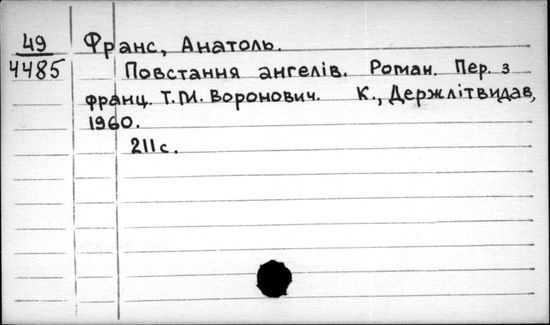 49 Франс, Анатоль.
4485 Повстання ангелів. Роман. Пер. з
франц. Т.М. Воронович. К., Держлітвидав,
1960.
211 с.